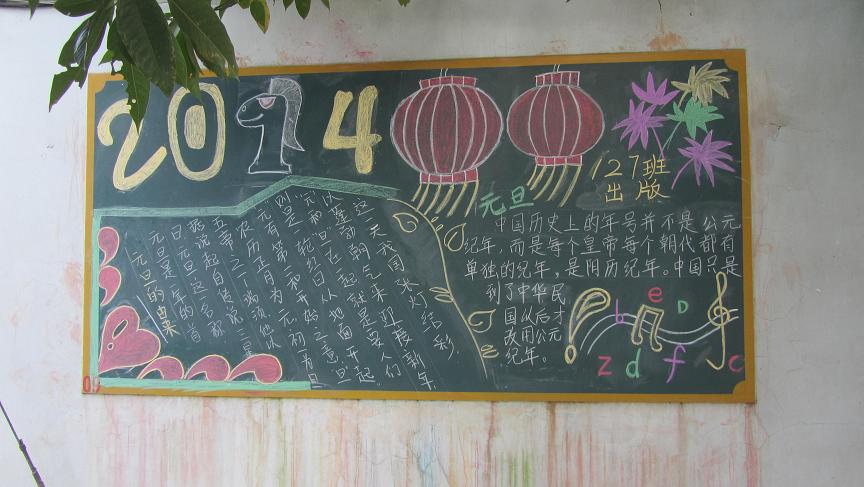 2014
127班
出版
元旦
元旦的由来
元旦是一年的首
日元旦这一名称
据说起自传说三皇
五帝之一颛顼他以
农历正月为元初一为旦
元有第一和开始之意旦
则是一轮红日从地面升起
元和旦在一起就是要人们
以蓬勃朝气来迎接新年
这一天我国张灯结彩
中国历史上的年号并不是公元
纪年，而是每个皇帝每个朝代都有
单独的纪年，是阴历纪年。中国只是
到了中华民
国以后才
改用公元
纪年。
b e D
z d f c
09